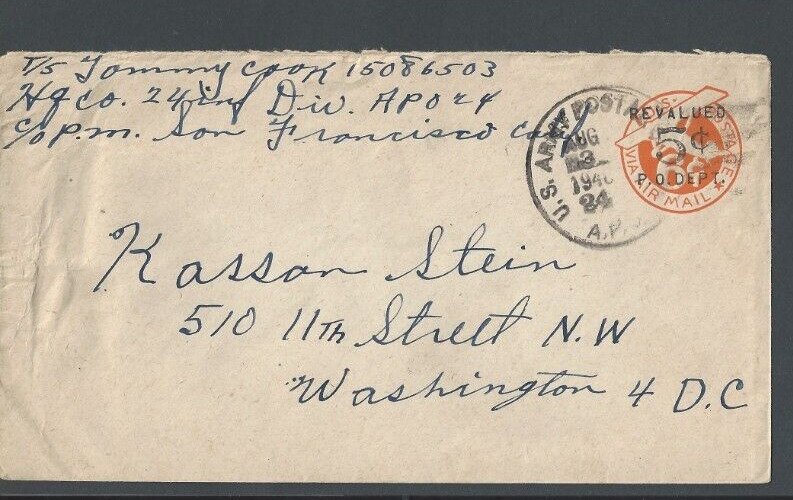 T/5 Tommy Cook 15086503
Hq Co. 24 inf Div. APO 24
c/o p.m. San Francisco Calif
U.S. ARMY POSTAL
AUG
3
1946
24
A.P.O.
U.S. POSTAGE
REVALUED
5¢
P.O. DEPT.
VIA AIR MAIL
Kasson Stein
510 11th Street N.W
Washington 4 D.C